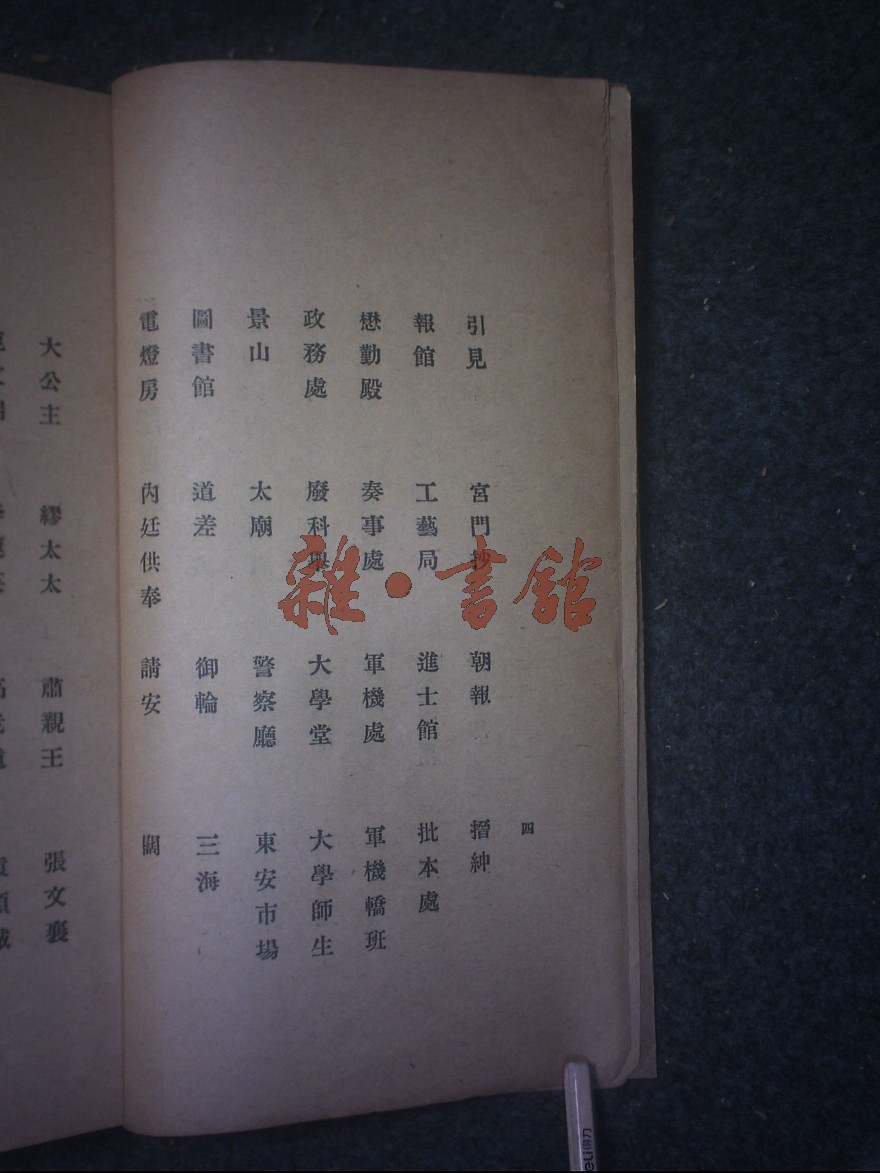 四
引見 宮門抄 朝報 搢紳
報館 工藝局 進士館 批本處
懋勤殿 奏事處 軍機處 軍機轎班
政務處 廢科舉 大學堂 大學師生
景山 太廟 警察廳 東安市場
圖書館 道差 御輪 三海
電燈房 內廷供奉 請安 闊
大公主 繆太太 肅親王 張文襄
雜·書館
deli得力